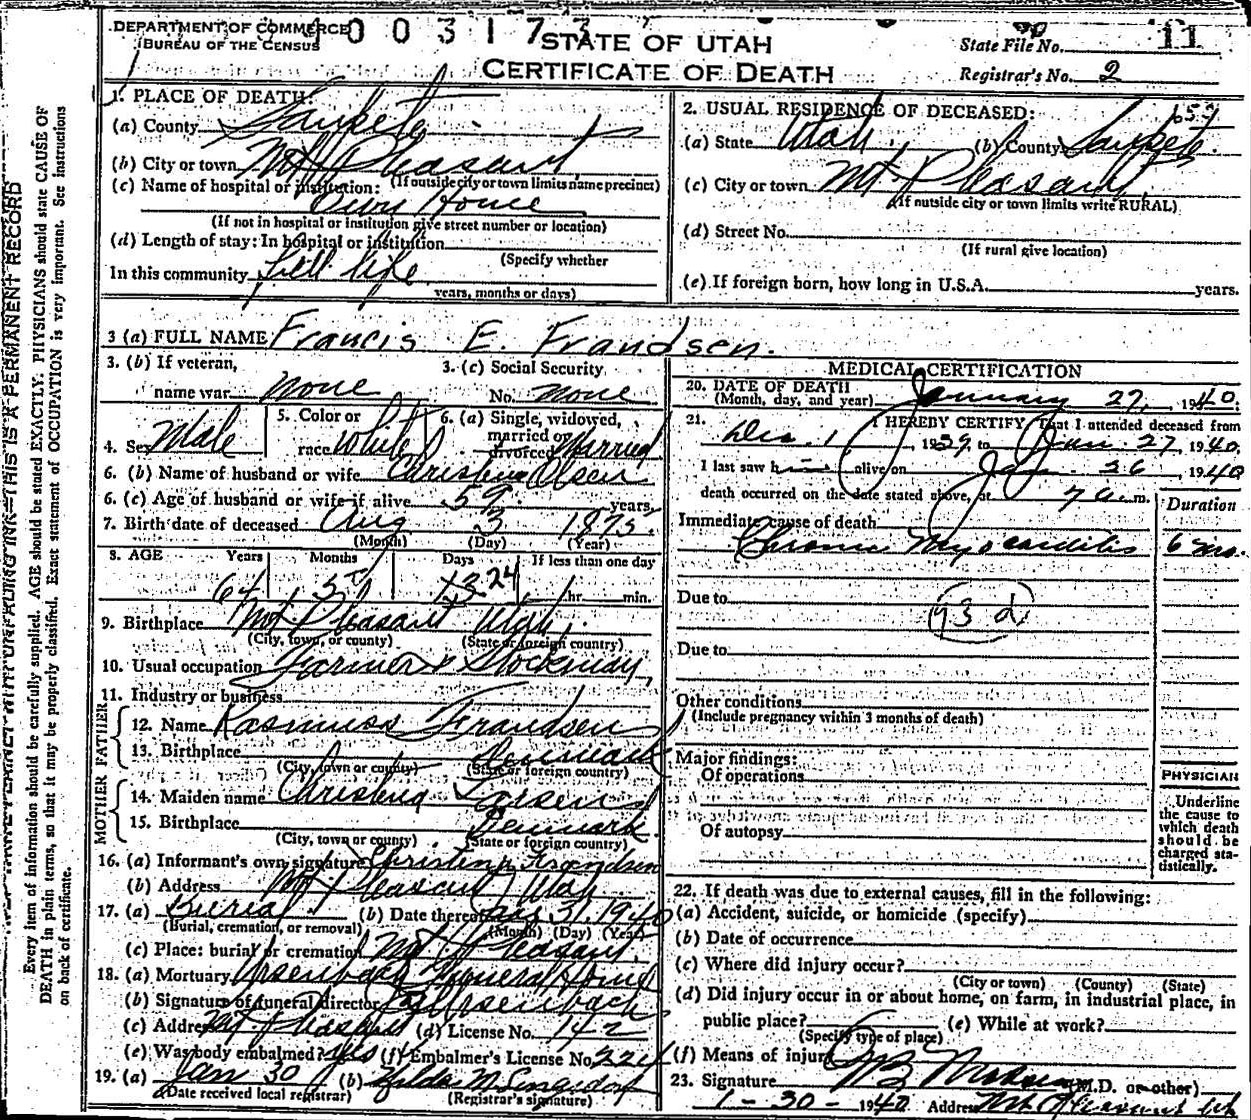 DEPARTMENT OF COMMERCE
BUREAU OF THE CENSUS
003173
STATE OF UTAH
CERTIFICATE OF DEATH
State File No. 11
Registrar's No. 2
1. PLACE OF DEATH:
(a) County Sanpete
(b) City or town Mt Pleasant
(If outside city or town limits name precinct)
(c) Name of hospital or institution:
Own Home
(If not in hospital or institution give street number or location)
(d) Length of stay: In hospital or institution
(Specify whether
In this community full life
years, months or days)
2. USUAL RESIDENCE OF DECEASED:
(a) State Utah (b) County Sanpete
(c) City or town Mt Pleasant
(If outside city or town limits write RURAL)
(d) Street No.
(If rural give location)
(e) If foreign born, how long in U.S.A. years.
3 (a) FULL NAME Francis E. Frandsen.
3. (b) If veteran,
name war none
3. (c) Social Security
No. none
4. Sex Male
5. Color or
race White
6. (a) Single, widowed,
married or
divorced Married
6. (b) Name of husband or wife Christena Olsen
6. (c) Age of husband or wife if alive 59 years
7. Birth date of deceased Aug 3 1875
(Month) (Day) (Year)
8. AGE Years Months Days If less than one day
64 5 24 hr. min.
9. Birthplace Mt Pleasant Utah
(City, town, or county) (State or foreign country)
10. Usual occupation Farmer & Stockman
11. Industry or business
FATHER
12. Name Rasmuss Frandsen
13. Birthplace Denmark
(City, town or county) (State or foreign country)
MOTHER
14. Maiden name Larsen
15. Birthplace Denmark
(City, town or county) (State or foreign country)
16. (a) Informant's own signature Christina Frandsen
(b) Address Mt Pleasant Utah
17. (a) Burial (b) Date thereof 31. 1940
(Burial, cremation, or removal) (Month) (Day) (Year)
(c) Place: burial or cremation Mt Pleasant.
18. (a) Mortuary Ursenbach Funeral Home
(b) Signature of funeral director Ursenbach
(c) Address Mt Pleasant (d) License No. 142
(e) Was body embalmed? Yes (f) Embalmer's License No.
19. (a) Jan 30 (b) Hilda M.
(Date received local registrar) (Registrar's signature)
MEDICAL CERTIFICATION
20. DATE OF DEATH
(Month, day, and year) January 27, 1940.
21. I HEREBY CERTIFY, That I attended deceased from
Dec. 1 1939 to Jan. 27 1940
I last saw him alive on Jan. 26 1940
death occurred on the date stated above, at 7 a.m.
Duration
Immediate cause of death
Chronic Myocarditis 6 mo.
Due to
93 d
Due to
Other conditions
(Include pregnancy within 3 months of death)
Major findings:
Of operations
Of autopsy
PHYSICIAN
Underline
the cause to
which death
should be
charged sta-
tistically.
22. If death was due to external causes, fill in the following:
(a) Accident, suicide, or homicide (specify)
(b) Date of occurrence
(c) Where did injury occur?
(City or town) (County) (State)
(d) Did injury occur in or about home, on farm, in industrial place, in
public place? (e) While at work?
(Specify type of place)
(f) Means of injury
23. Signature (M.D. or other)
1-30-1940 Address
Every item of information should be carefully supplied. AGE should be stated EXACTLY. PHYSICIANS should state CAUSE OF
DEATH in plain terms, so that it may be properly classified. Exact statement of OCCUPATION is very important. See instructions
on back of certificate.